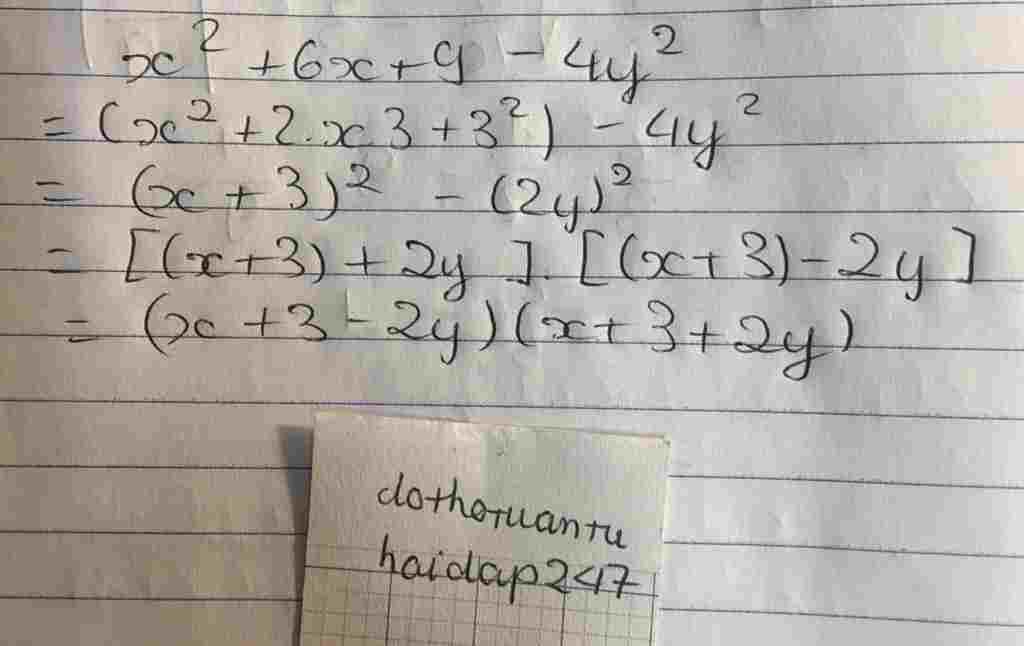 x² + 6x + 9 - 4y²
= (x² + 2.x3 + 3²) - 4y²
= (x + 3)² - (2y)²
= [(x+3) + 2y]. [(x+3) - 2y]
= (x + 3 - 2y)(x + 3 + 2y)
dothotuantu
haidap247